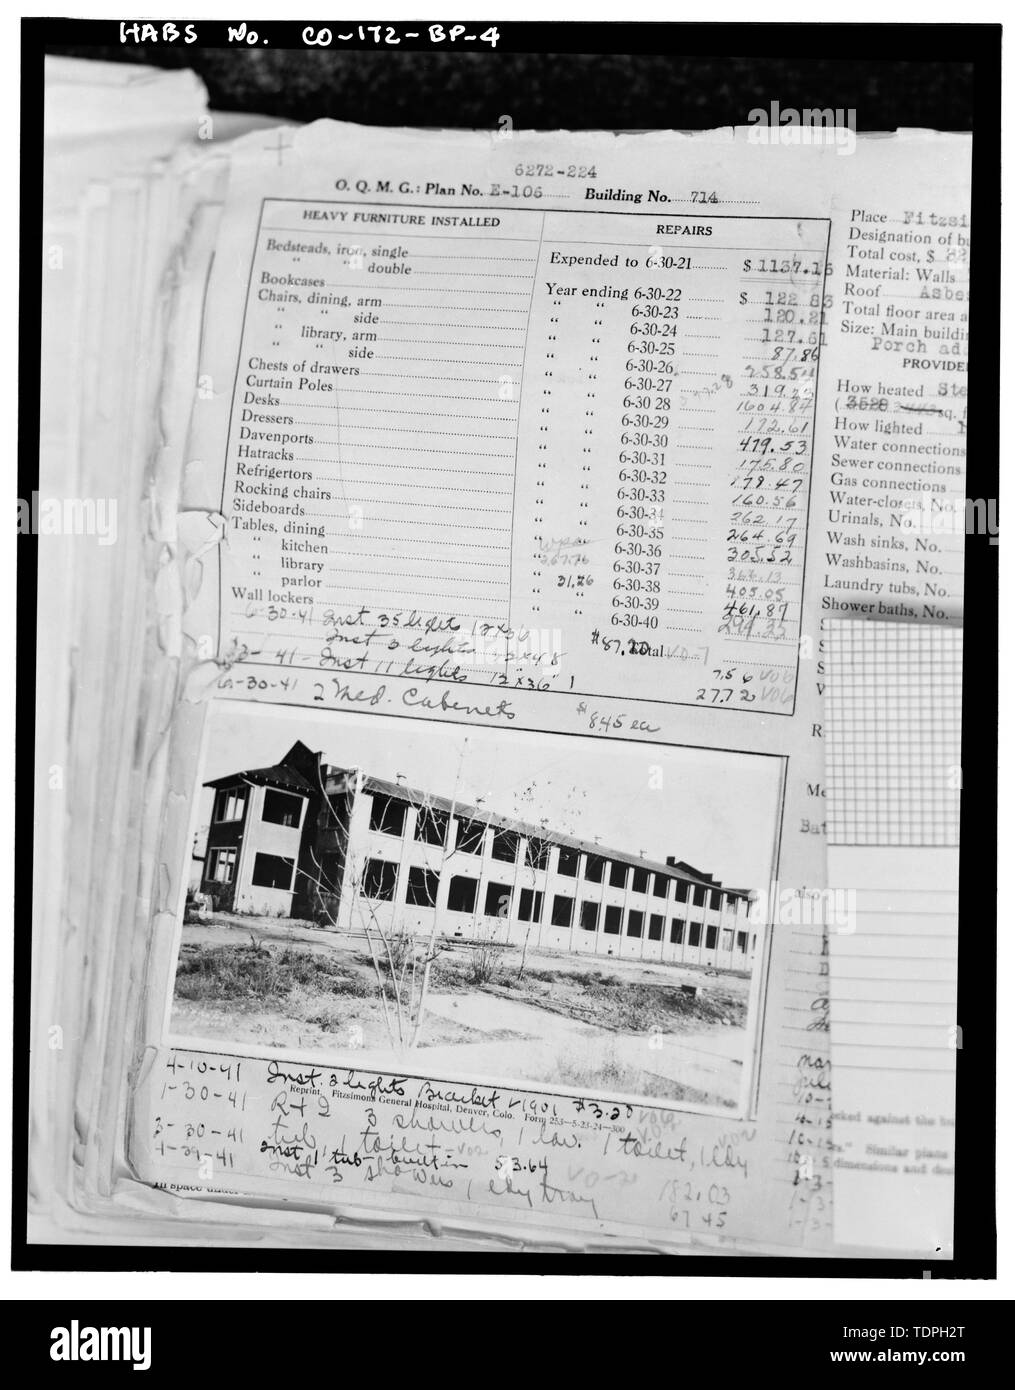 HABS No. CO-172-BP-4
6272-224
O. Q. M. G.: Plan No. E-106 Building No. 714
HEAVY FURNITURE INSTALLED
Bedsteads, iron, single
" " double
Bookcases
Chairs, dining, arm
" " side
" library, arm
" " side
Chests of drawers
Curtain Poles
Desks
Dressers
Davenports
Hatracks
Refrigertors
Rocking chairs
Sideboards
Tables, dining
" kitchen
" library
" parlor
Wall lockers
REPAIRS
Expended to 6-30-21 $ 1137.16
Year ending 6-30-22 $ 122 83
" " 6-30-23 120.21
" " 6-30-24 127.61
" " 6-30-25 87.86
" " 6-30-26 258.54
" " 6-30-27 319.22
" " 6-30 28 1604.87
" " 6-30-29 172.61
" " 6-30-30 479.53
" " 6-30-31 175.80
" " 6-30-32 178.47
" " 6-30-33 160.56
" " 6-30-34 262.17
" " 6-30-35 264.69
" " 6-30-36 305.52
" " 6-30-37
" 31.26 " 6-30-38 405.05
" " 6-30-39 461.87
" " 6-30-40 294.33
$87.20 Total VO-7
7.56 VO6
27.72 VO6
6-30-41 Inst 35 lights 12x36
Inst 3 lights
41- Inst 11 lights 12"x36" 1
6-30-41 2 Med. Cabenets $8.45 ea
4-10-41 Inst. 3 lights Bracket V1901 $3.20 VO6
Reprint, Fitzsimons General Hospital, Denver, Colo. Form 253—5-23-24—300
1-30-41 R & I 3 showers, 1 lav. 1 toilet, 1 ldy
tub 1 toilet
3-30-41 Inst 1 tub-1 built in 53.64
4-29-41 Inst 3 showers 1 ldy tray
182.03
67 45
In space under
Place Fitzsi
Designation of b
Total cost, $
Material: Walls
Roof Asbe
Total floor area
Size: Main buildi
Porch ad
PROVIDE
How heated Ste
sq. f
How lighted
Water connections
Sewer connections
Gas connections
Water-closets, No.
Urinals, No.
Wash sinks, No.
Washbasins, No.
Laundry tubs, No.
Shower baths, No.
R
Me
Bat
also
ocked against the
Similar plans
dimensions and
alamy
Image ID: TDPH2T
www.alamy.com